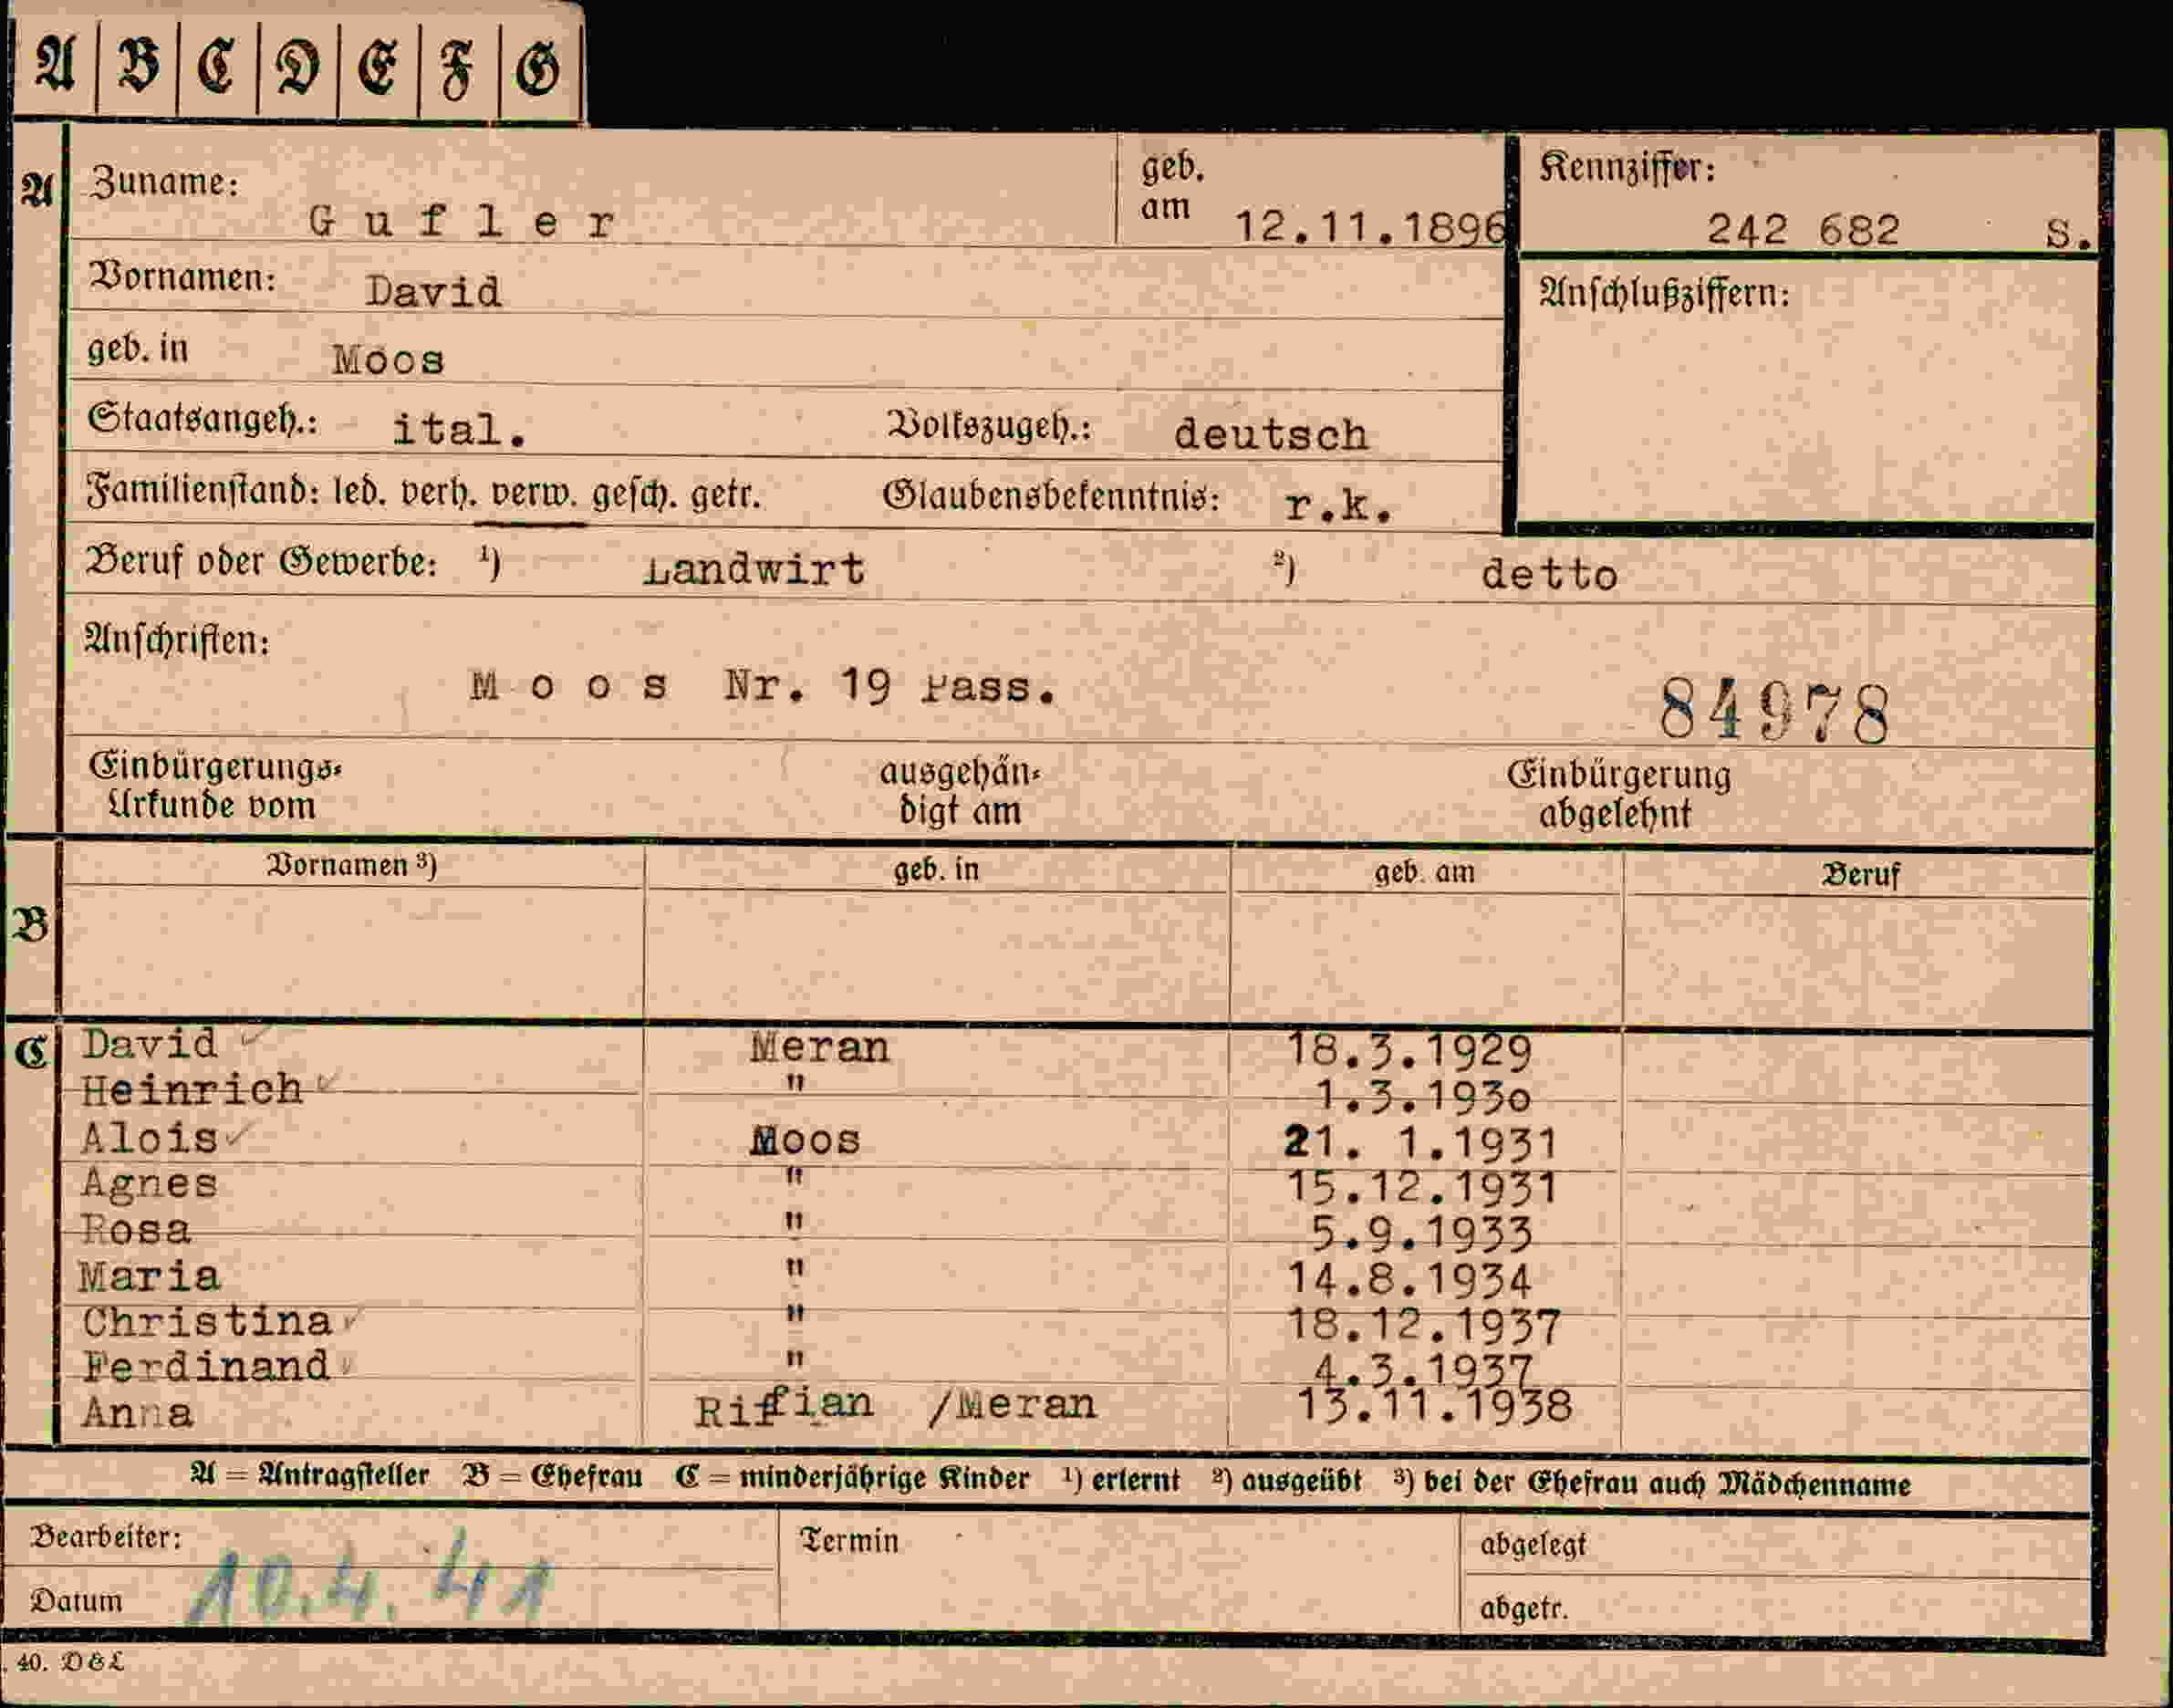 A B C D E F G
A Zuname: Gufler geb. am 12.11.1896 Kennziffer: 242 682 S.
Vornamen: David Anschlußziffern:
geb. in Moos
Staatsangeh.: ital. Volkszugeh.: deutsch
Familienstand: led. verh. verw. gesch. getr. Glaubensbekenntnis: r.k.
Beruf oder Gewerbe: ¹) Landwirt ²) detto
Anschriften:
Moos Nr. 19 Pass.
84978
Einbürgerungs-Urkunde vom ausgehändigt am Einbürgerung abgelehnt
Vornamen ³) geb. in geb. am Beruf
B
C David Meran 18.3.1929
Heinrich " 1.3.1930
Alois Moos 21. 1.1931
Agnes " 15.12.1931
Rosa " 5.9.1933
Maria " 14.8.1934
Christina " 18.12.1937
Ferdinand " 4.3.1937
Anna Riffian /Meran 13.11.1938
A = Antragsteller B = Ehefrau C = minderjährige Kinder ¹) erlernt ²) ausgeübt ³) bei der Ehefrau auch Mädchenname
Bearbeiter: Termin abgelegt
Datum 10.4.41 abgetr.
40. D&L